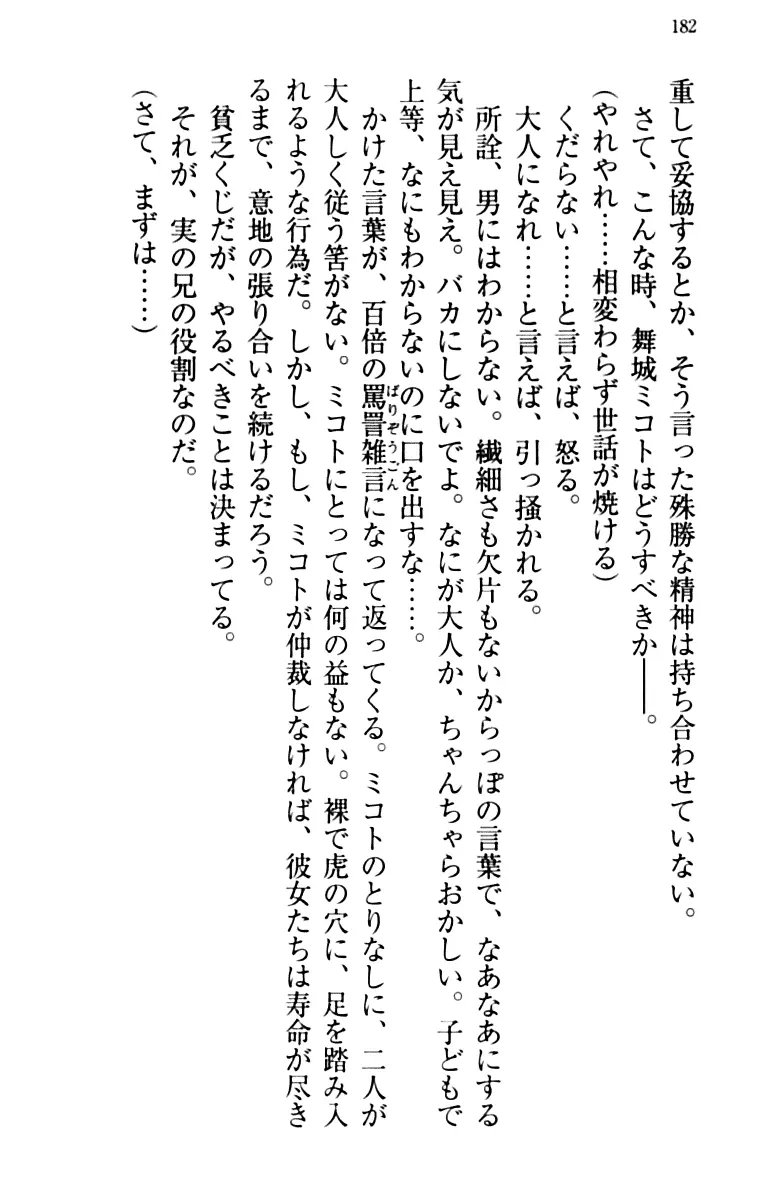 182
重して妥協するとか、そう言った殊勝な精神は持ち合わせていない。
さて、こんな時、舞城ミコトはどうすべきか――。
(やれやれ……相変わらず世話が焼ける)
くだらない……と言えば、怒る。
大人になれ……と言えば、引っ掻かれる。
所詮、男にはわからない。繊細さも欠片もないからっぽの言葉で、なあなあにする
気が見え見え。バカにしないでよ。なにが大人か、ちゃんちゃらおかしい。子どもで
上等、なにもわからないのに口を出すな……。
かけた言葉が、百倍の罵詈雑言になって返ってくる。ミコトのとりなしに、二人が
ばりぞうごん
大人しく従う筈がない。ミコトにとっては何の益もない。裸で虎の穴に、足を踏み入
れるような行為だ。しかし、もし、ミコトが仲裁しなければ、彼女たちは寿命が尽き
るまで、意地の張り合いを続けるだろう。
貧乏くじだが、やるべきことは決まってる。
それが、実の兄の役割なのだ。
(さて、まずは……)